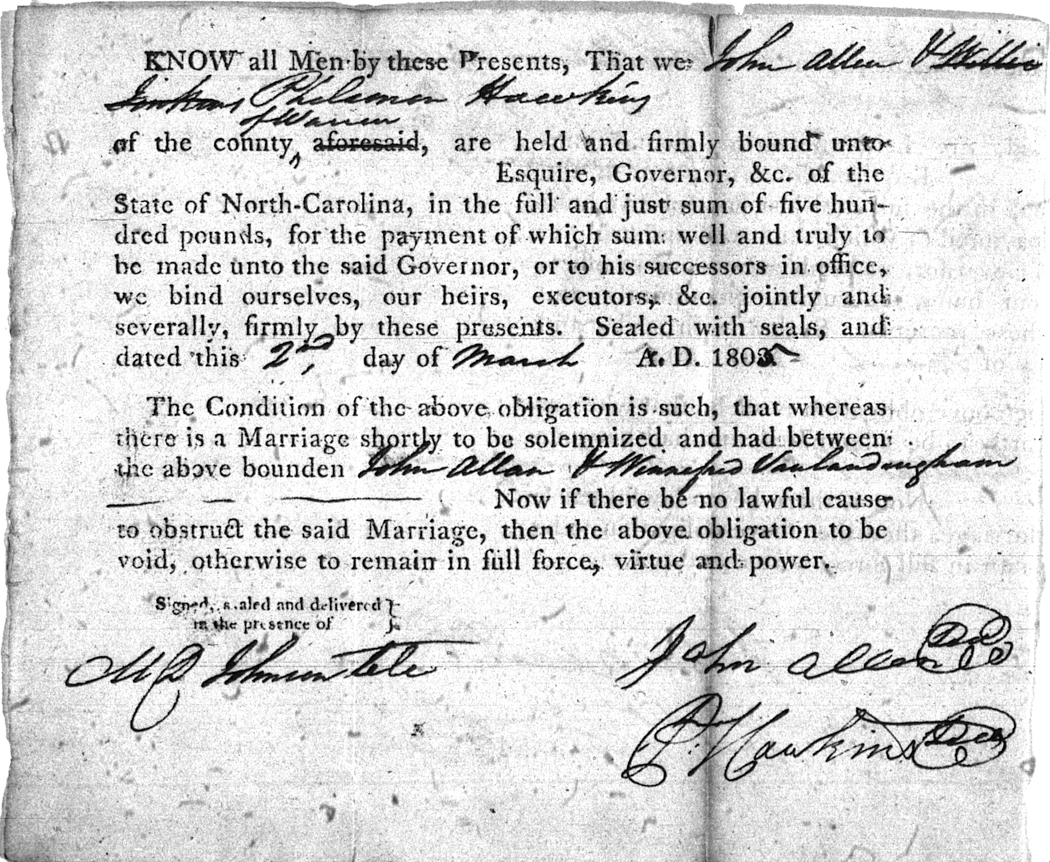 KNOW all Men by these Presents, That we John Allen & Willie
Jinkins Philemon Hawkins
of Warren
of the county aforesaid, are held and firmly bound unto
Esquire, Governor, &c. of the
State of North-Carolina, in the full and just sum of five hun-
dred pounds, for the payment of which sum well and truly to
be made unto the said Governor, or to his successors in office,
we bind ourselves, our heirs, executors, &c. jointly and
severally, firmly by these presents. Sealed with seals, and
dated this 2nd, day of March A. D. 1805
The Condition of the above obligation is such, that whereas
there is a Marriage shortly to be solemnized and had between
the above bounden John Allan & Winnefred Vanlandingham
Now if there be no lawful cause
to obstruct the said Marriage, then the above obligation to be
void, otherwise to remain in full force, virtue and power.
Signed, sealed and delivered
in the presence of
M D Johnson
John Allen Seal
P. Hawkins Seal